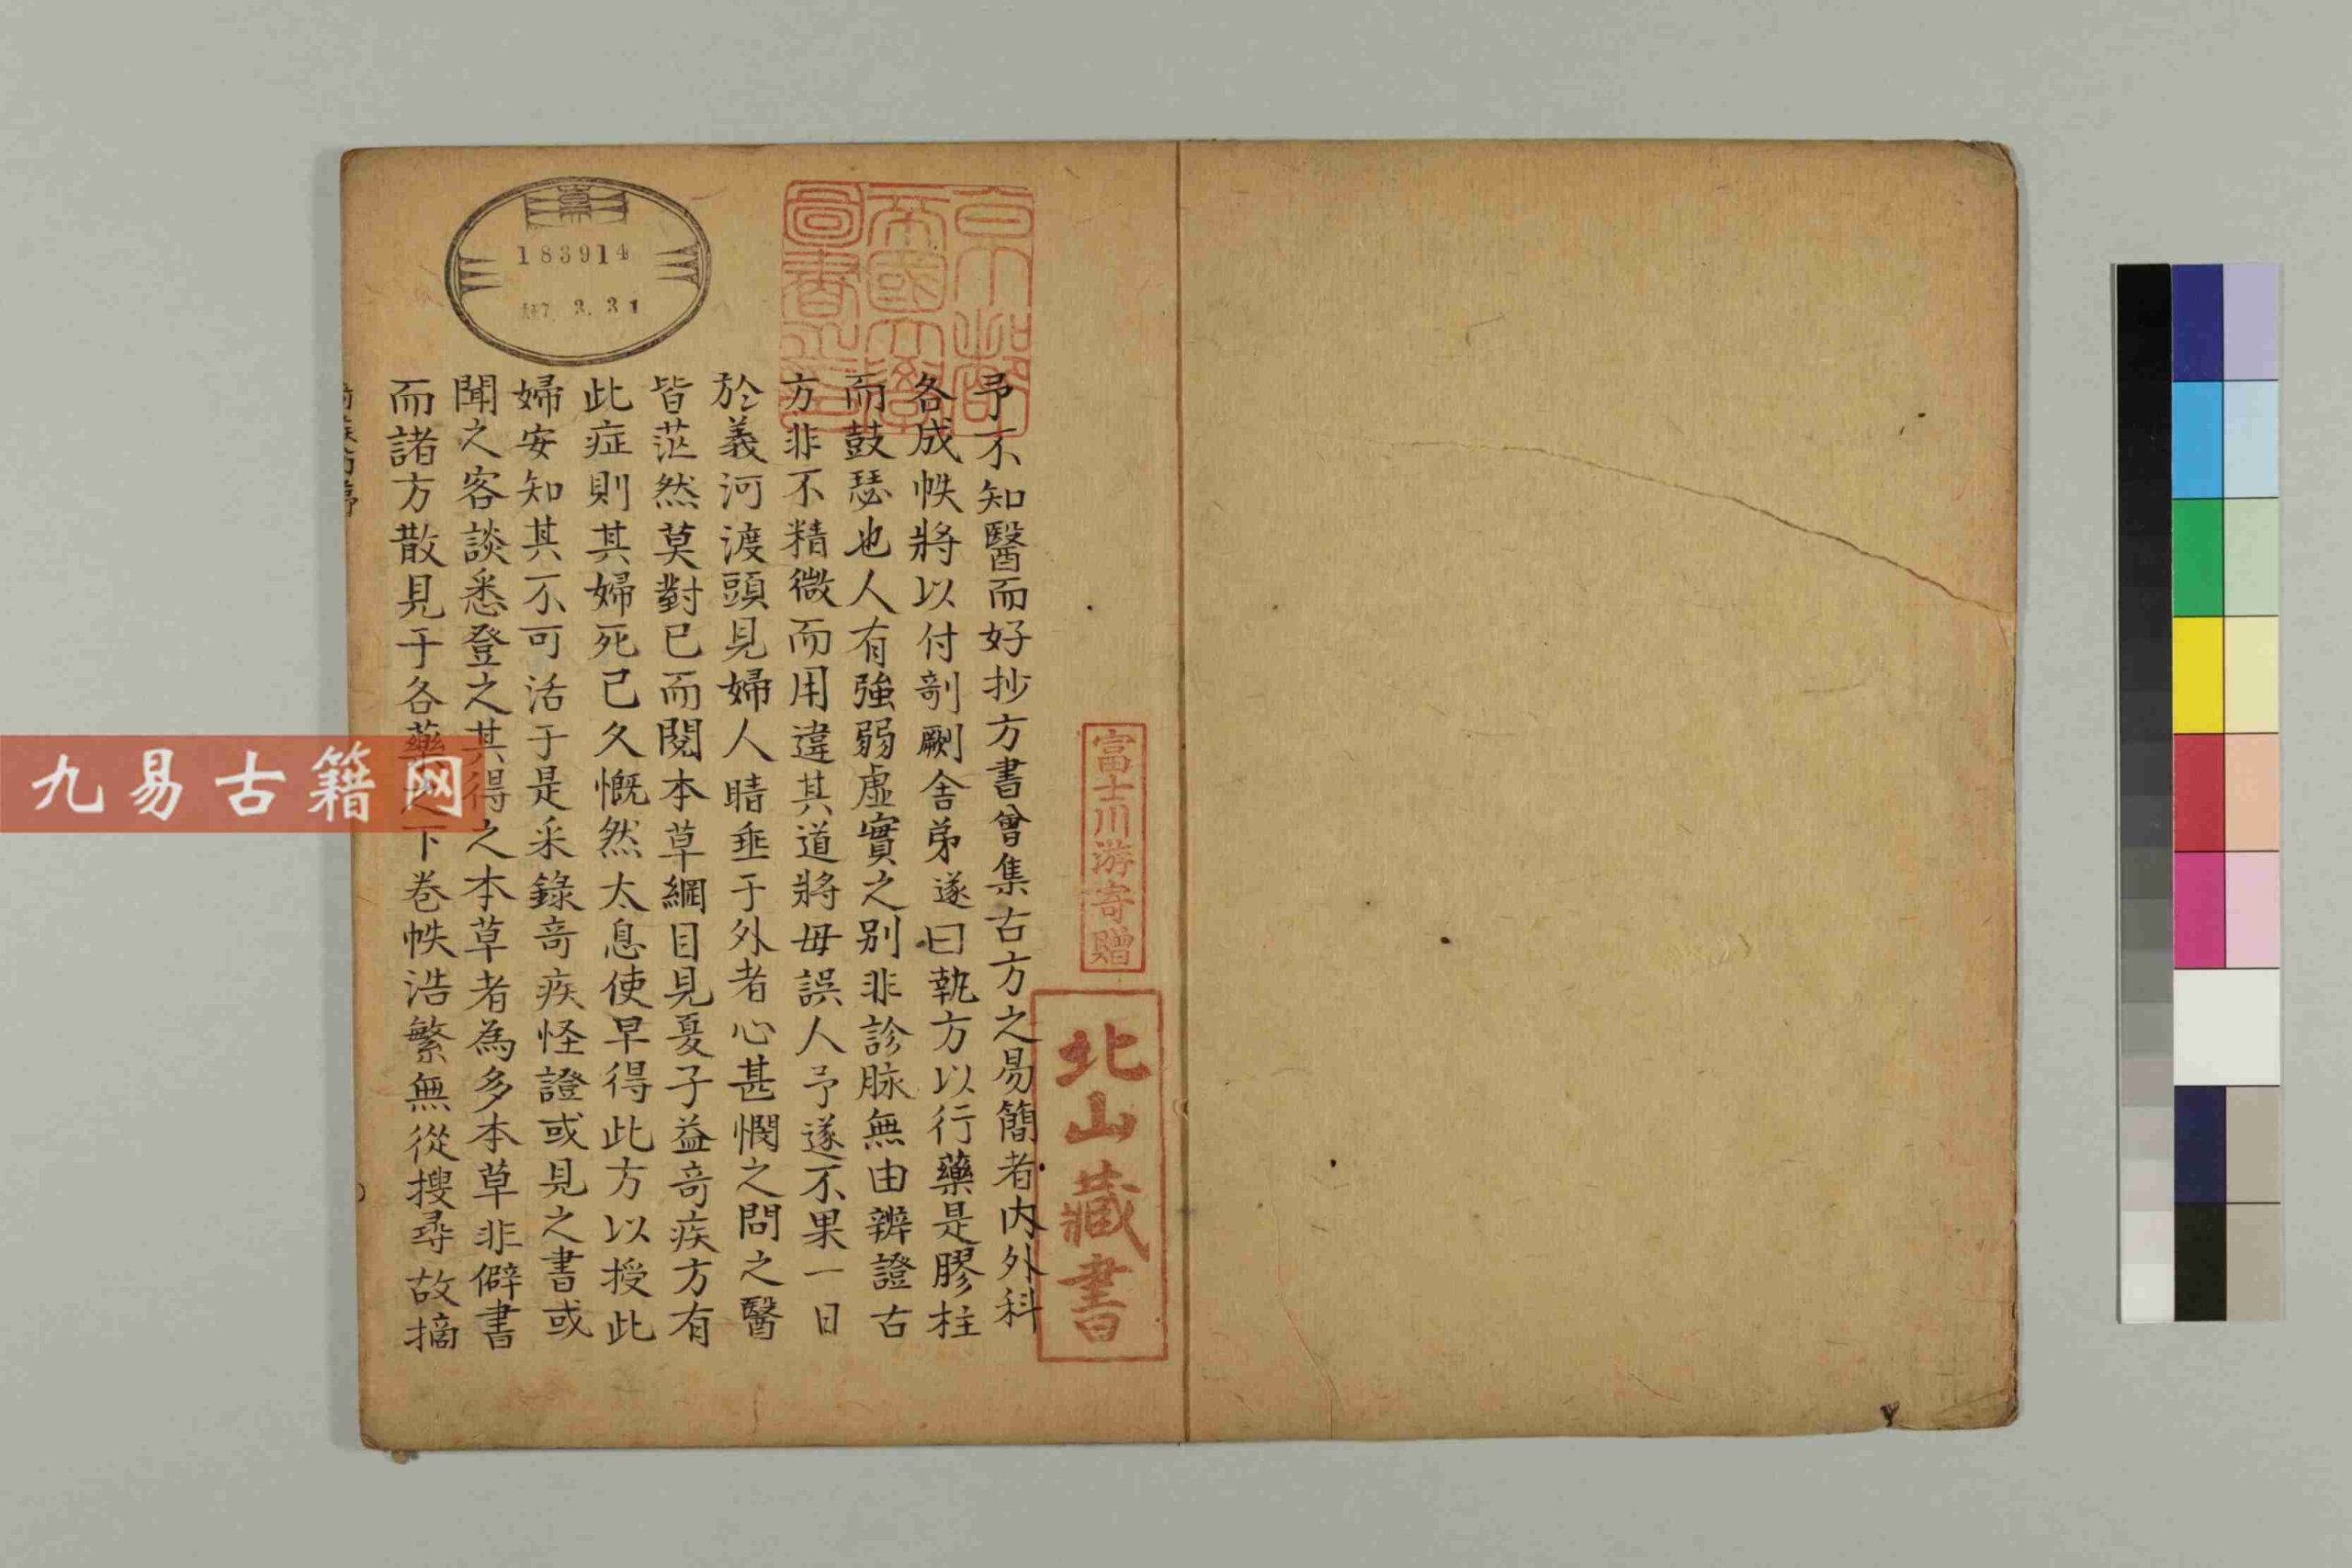 予不知醫而好抄方書曾集古方之易簡者內外科
各成帙將以付剞劂舍弟遂曰執方以行藥是膠柱
而鼓瑟也人有強弱虛實之別非診脉無由辨證古
方非不精微而用違其道將毋誤人予遂不果一日
於義河渡頭見婦人睛垂于外者心甚憫之問之醫
皆茫然莫對已而閱本草綱目見夏子益奇疾方有
此症則其婦死已久慨然太息使早得此方以授此
婦安知其不可活于是采錄奇疾怪證或見之書或
聞之客談悉登之其得之本草者為多本草非僻書
而諸方散見于各藥之下卷帙浩繁無從搜尋故摘
京都
帝國大學
圖書之印
富士川游寄贈
北山藏書
183914
大正7. 3. 31
九易古籍网